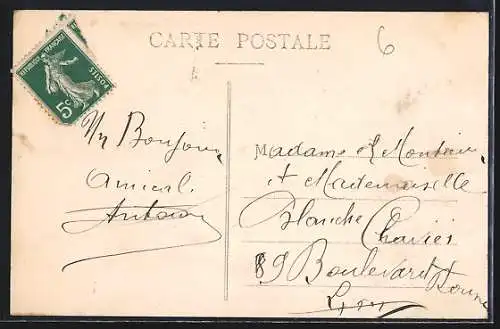 CARTE POSTALE
6
REPUBLIQUE FRANÇAISE
POSTES
5c
Un Bonjour
amical
Antoine
Madame et Monsieur
et Mademoiselle
Blanche
89 Boulevard
Lyon